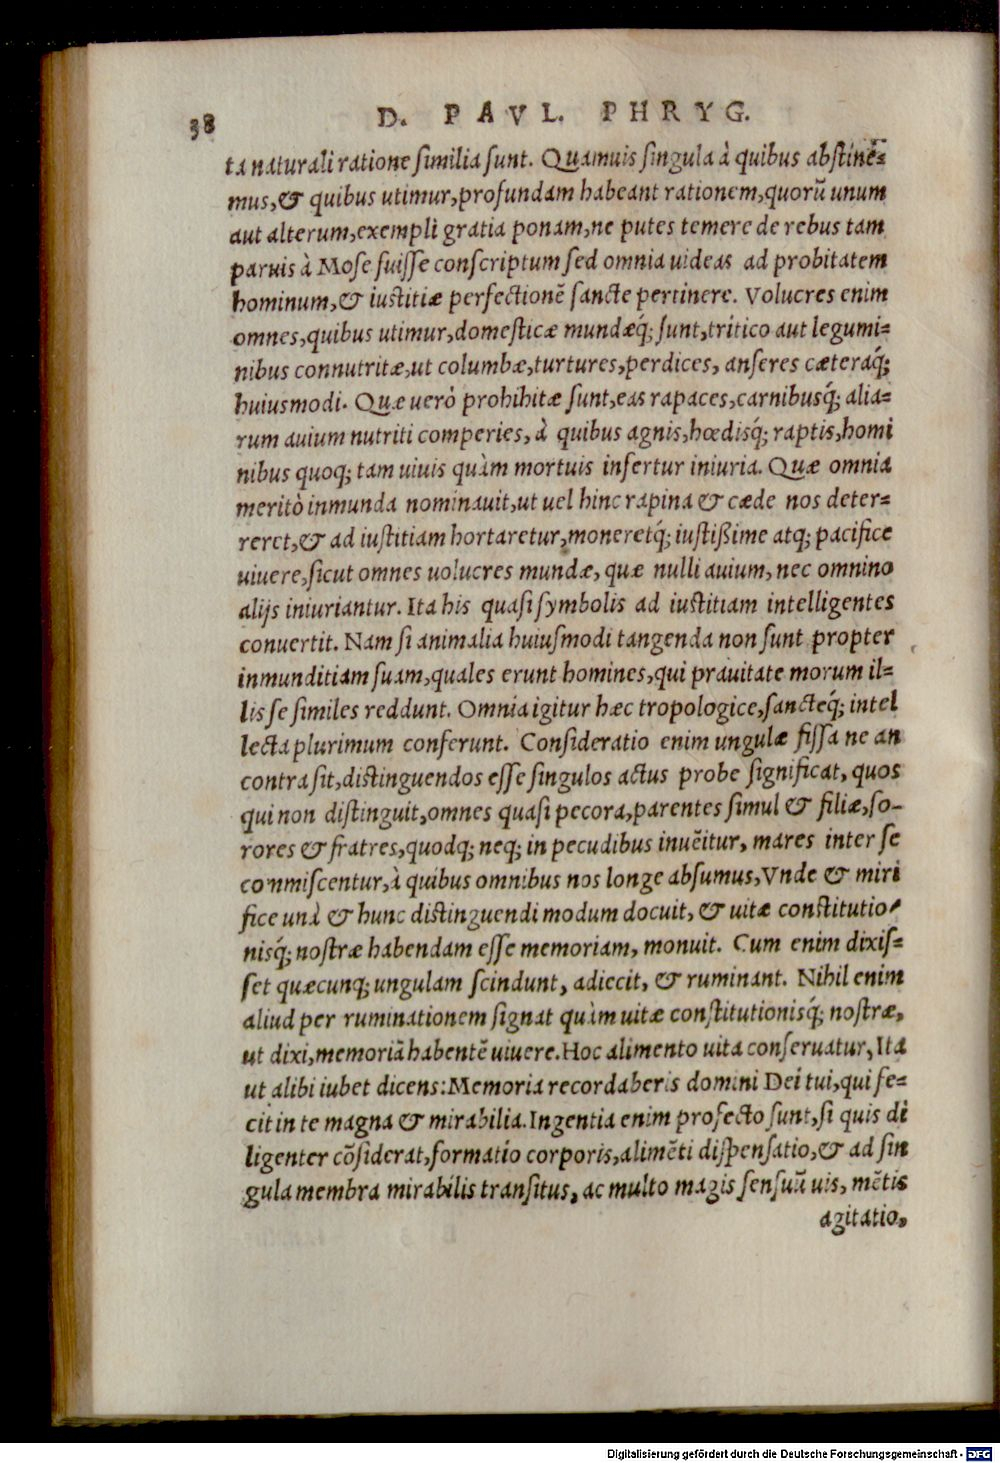 38
D. PAVL. PHRYG.
ta naturali ratione similia sunt. Quamuis singula à quibus abstine=
mus, & quibus utimur, profundam habeant rationem, quorũ unum
aut alterum, exempli gratia ponam, ne putes temere de rebus tam
paruis à Mose fuisse conscriptum sed omnia uideas ad probitatem
hominum, & iustitiæ perfectionẽ sancte pertinere. Volucres enim
omnes, quibus utimur, domesticæ mundæq́; sunt, tritico aut legumi=
nibus connutritæ, ut columbæ, turtures, perdices, anseres cæteraq́;
huiusmodi. Quæ uerò prohibitæ sunt, eas rapaces, carnibusq́; alia=
rum auium nutriti comperies, à quibus agnis, hœdisq́; raptis, homi
nibus quoq; tam uiuis quàm mortuis infertur iniuria. Quæ omnia
meritò inmunda nominauit, ut uel hinc rapina & cæde nos deter=
reret, & ad iustitiam hortaretur, moneretq́; iustißime atq; pacifice
uiuere, sicut omnes uolucres mundæ, quæ nulli auium, nec omnino
alijs iniuriantur. Ita his quasi symbolis ad iustitiam intelligentes
conuertit. Nam si animalia huiusmodi tangenda non sunt propter
inmunditiam suam, quales erunt homines, qui prauitate morum il=
lis se similes reddunt. Omnia igitur hæc tropologice, sancteq́; intel
lecta plurimum conferunt. Consideratio enim ungulæ fissa ne an
contra sit, distinguendos esse singulos actus probe significat, quos
qui non distinguit, omnes quasi pecora, parentes simul & filiæ, so-
rores & fratres, quodq; neq; in pecudibus inuẽitur, mares inter se
conmiscentur, à quibus omnibus nos longe absumus, Vnde & miri
fice unà & hunc distinguendi modum docuit, & uitæ constitutio=
nisq́; nostræ habendam esse memoriam, monuit. Cum enim dixis=
set quæcunq; ungulam scindunt, adiecit, & ruminant. Nihil enim
aliud per ruminationem signat quàm uitæ constitutionisq́; nostræ,
ut dixi, memoriã habentẽ uiuere. Hoc alimento uita conseruatur, Ita
ut alibi iubet dicens: Memoria recordaberis domini Dei tui, qui fe=
cit in te magna & mirabilia. Ingentia enim profecto sunt, si quis di
ligenter cõsiderat, formatio corporis, alimẽti dispensatio, & ad sin
gula membra mirabilis transitus, ac multo magis sensuũ uis, mẽtis
agitatio,
Digitalisierung gefördert durch die Deutsche Forschungsgemeinschaft - DFG